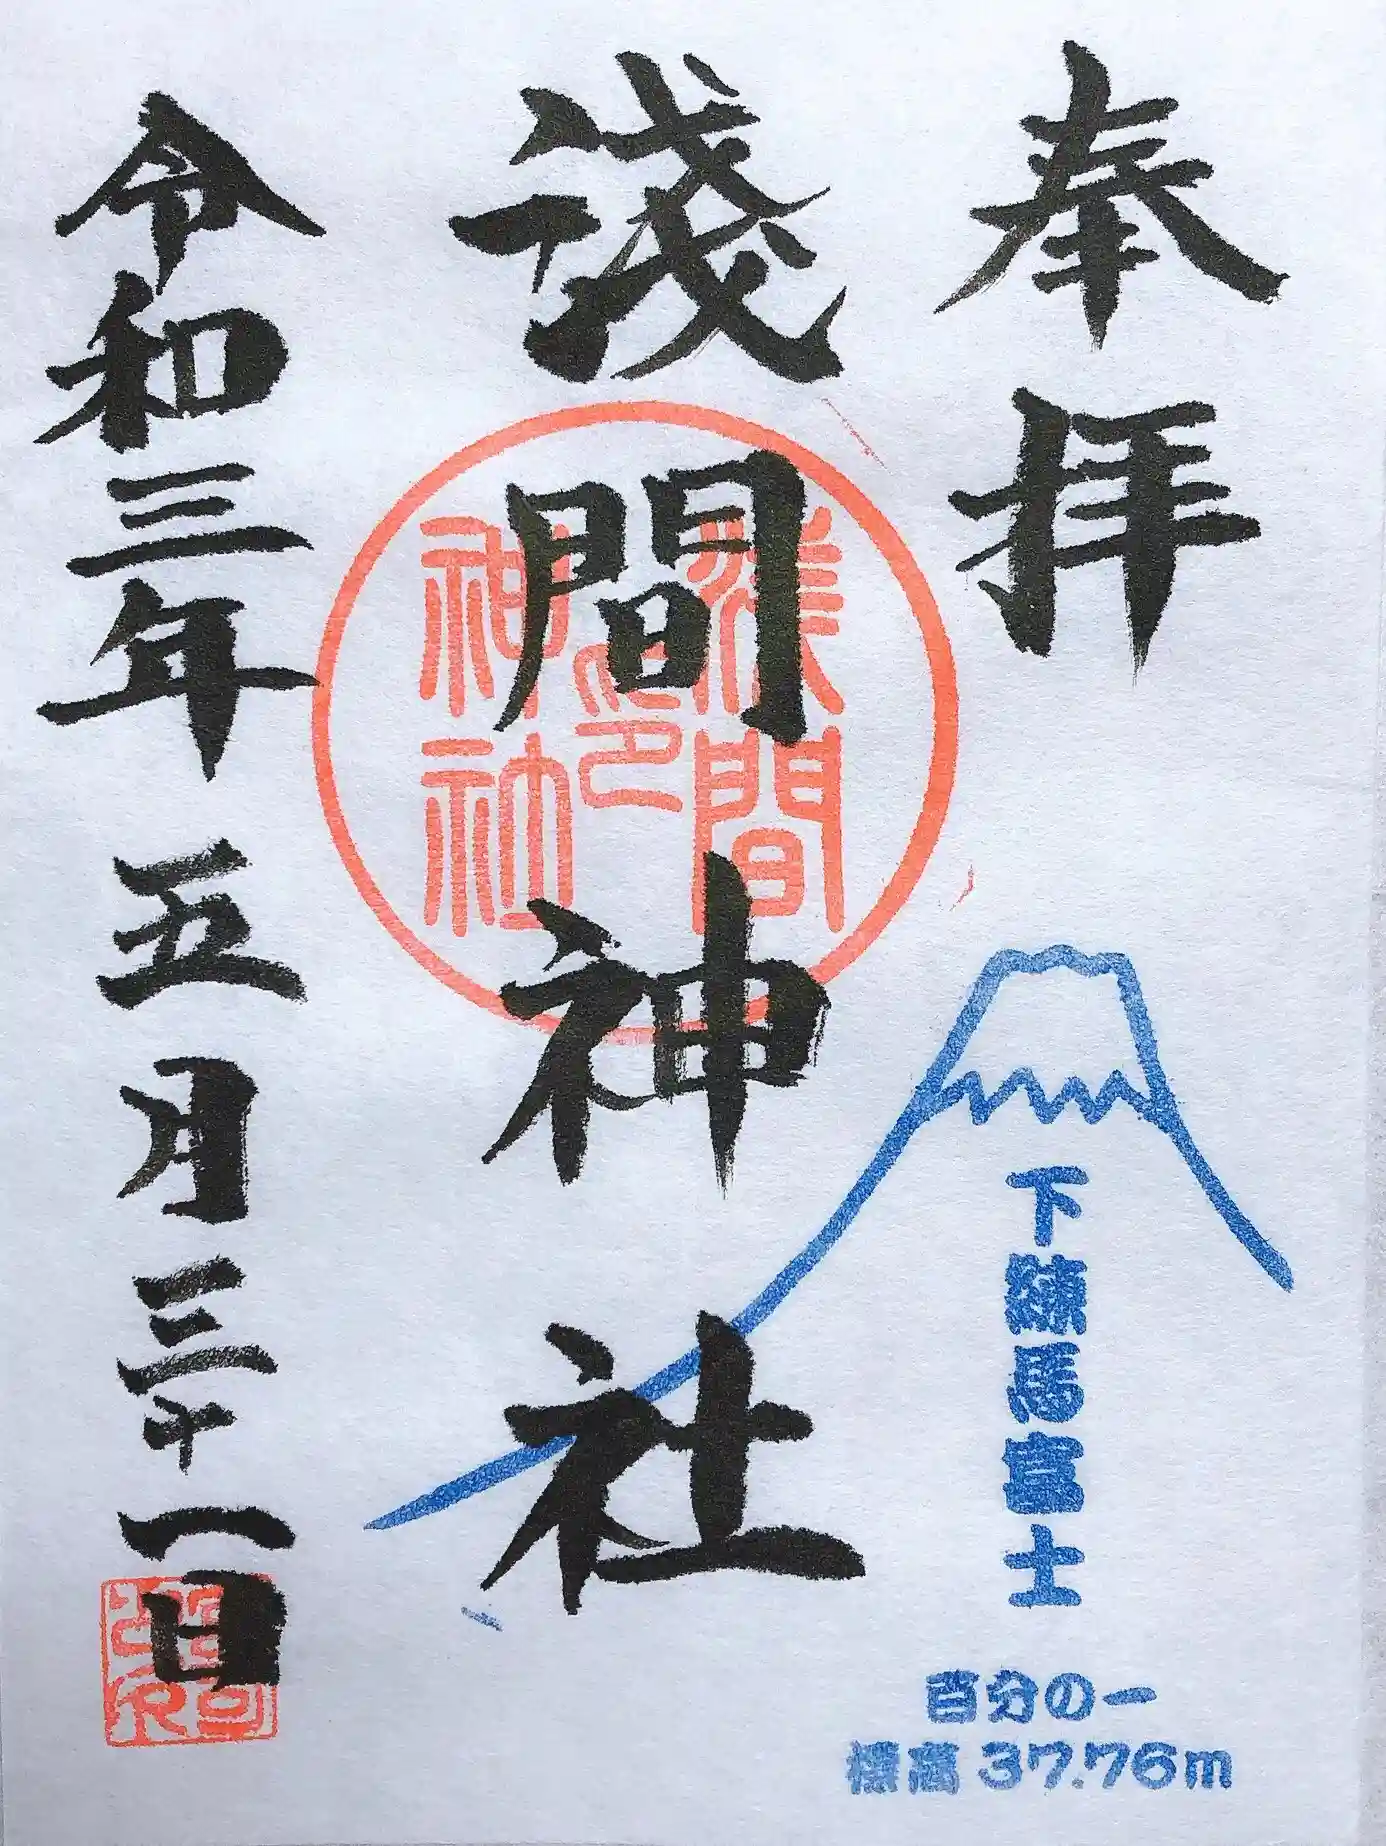 奉拝
淺間神社
淺間
神社
之印
下練馬富士
百分の一
標高 37.76m
令和三年 五月三十一日